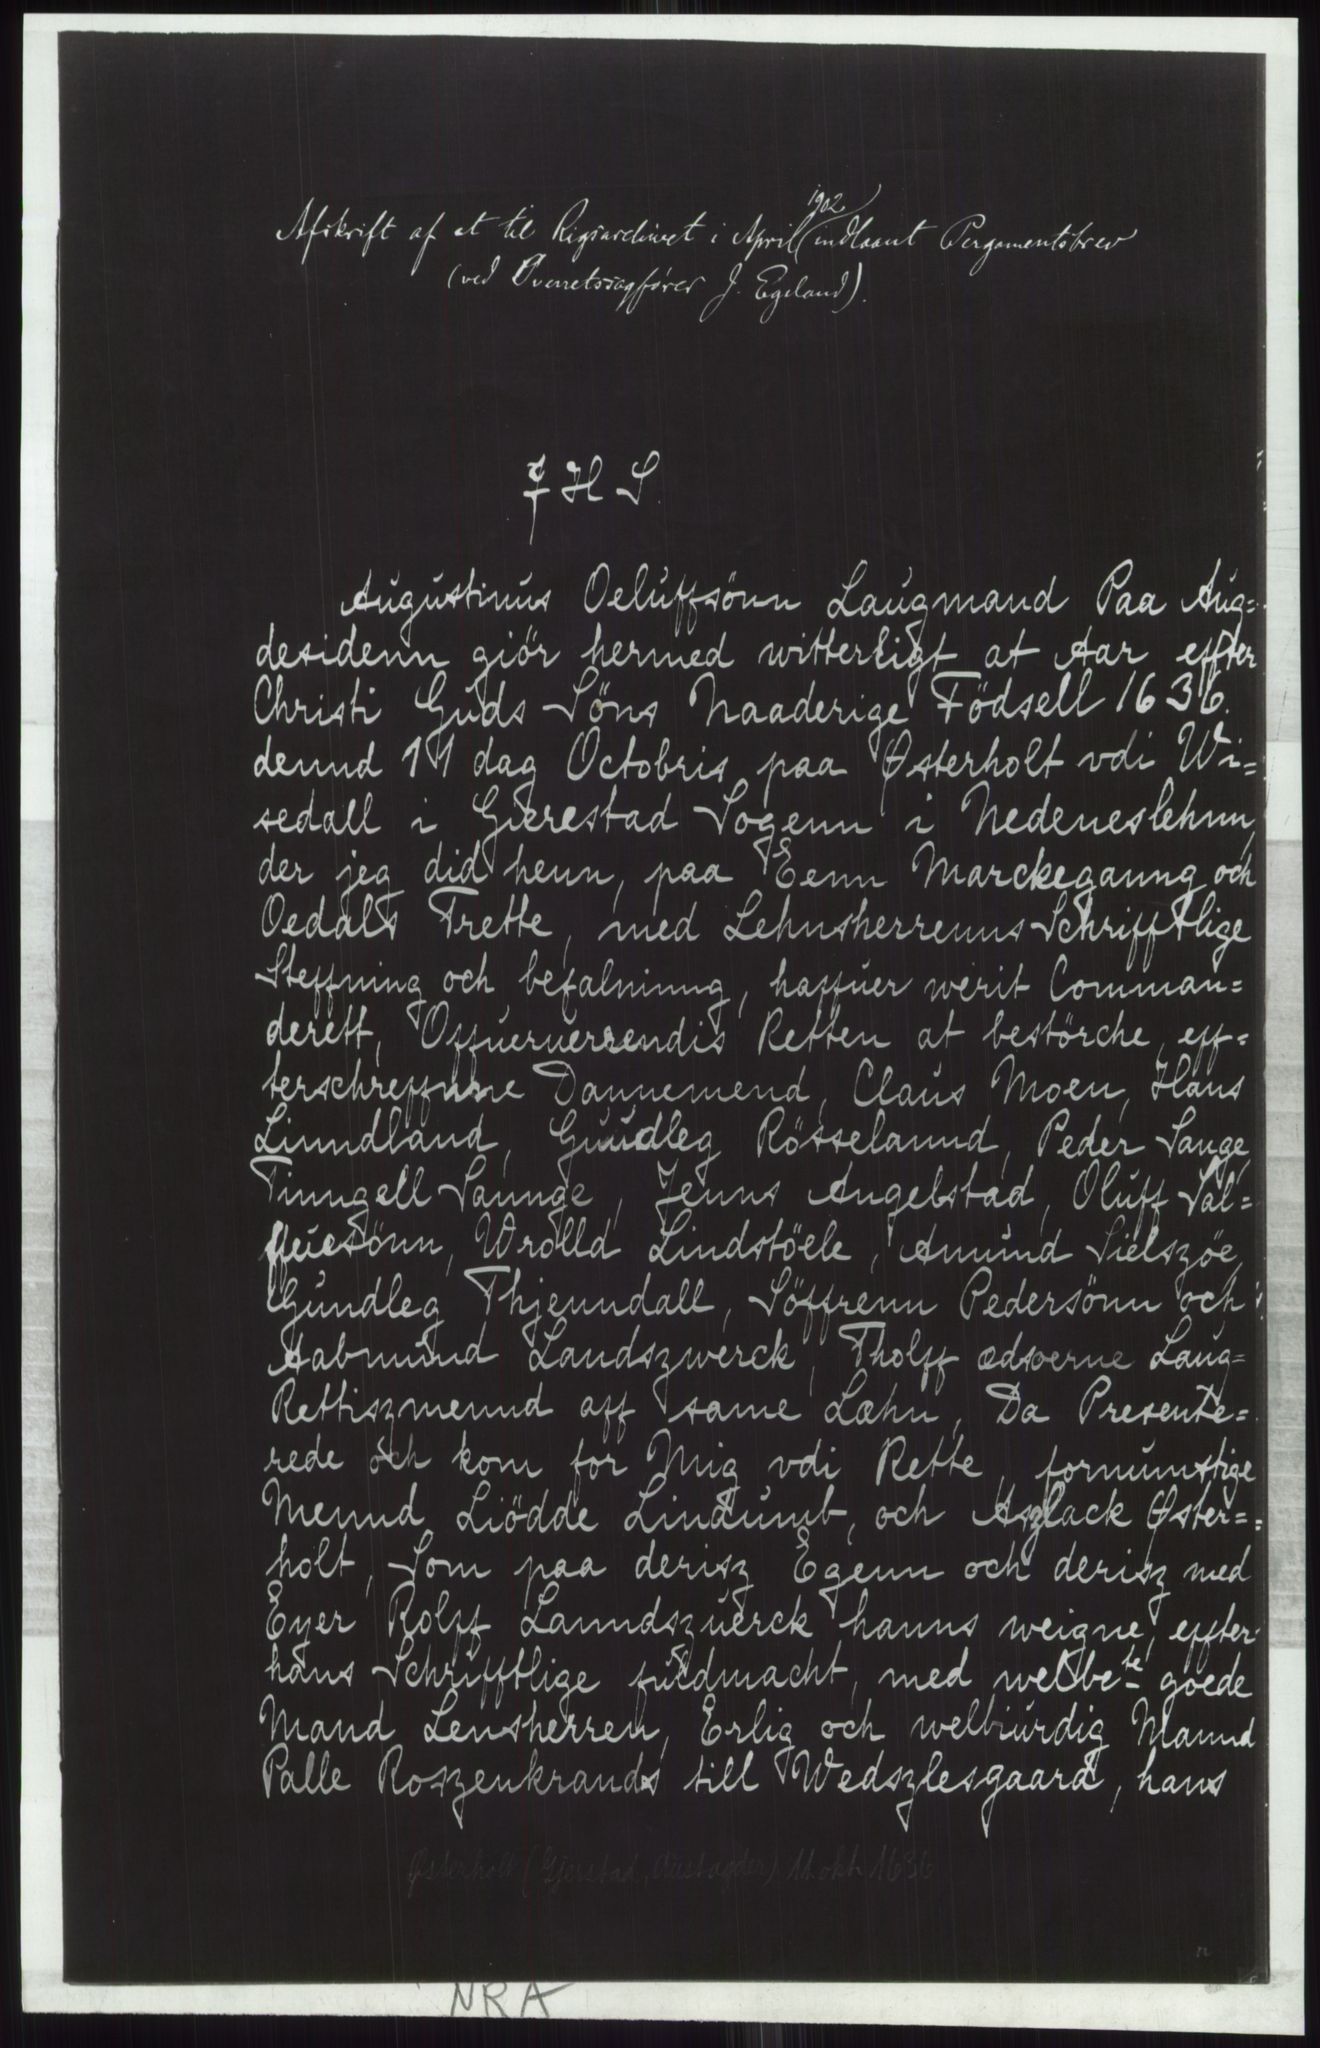 1902
Afskrift af et til Rigsarchivet i April indlaant Pergamentsbrev
(ved Overretssagfører J. Egeland).
J H S
Augustinus Oeluffsönn Laugmand Paa Aug=
desidenn giör hermed witterligt at Aar effter
Christi Guds Söns Naaderige Födsell 1636.
dennd 11 dag Octobris, paa Østerholt vdi Wi=
sedall i Gierestad Sogenn i Nedeneslehnn,
der jeg did henn, paa Eenn Marckeganng och
Oedals Trette, med Lehnsherrenns Schrifftlige
Steffning och befalninng, haffuer werit Comman=
derett, Offueruerrendis Retten at bestörche, eff=
terschreffnne Dannemend, Claus Moen, Hans
Linndland, Gundleg Rösselannd, Peder Sange,
Tinngell Sannge, Jenns Angelstad, Oluff Sal=
ffuesönn, Wrolld Lindstöele, Amund Sielszöe,
Gundleg Thjenndall, Söffrenn Pedersönn och
Aabmund Landszwerck, Tholff edsoerne Laug=
Rettiszmennd aff same Læhn, Da Presente=
rede och kom for Mig vdi Rette, fornumstige
Mennd Liödde Lindtumb, och Aszlack Øster=
holt, Som paa derisz Egenn och derisz med
Eyer Rolff Lanndszuerck hanns weigne, effter
hans Schrifftlige fuldmacht, med welbe-te goede
Mand Lensherren, Erlig och welbiurdig Mannd
Palle Roszenkrands till Wedszlesgaard, hans
Østerholt (Gjerstad, Austagder) 11. okt. 1636
NRA